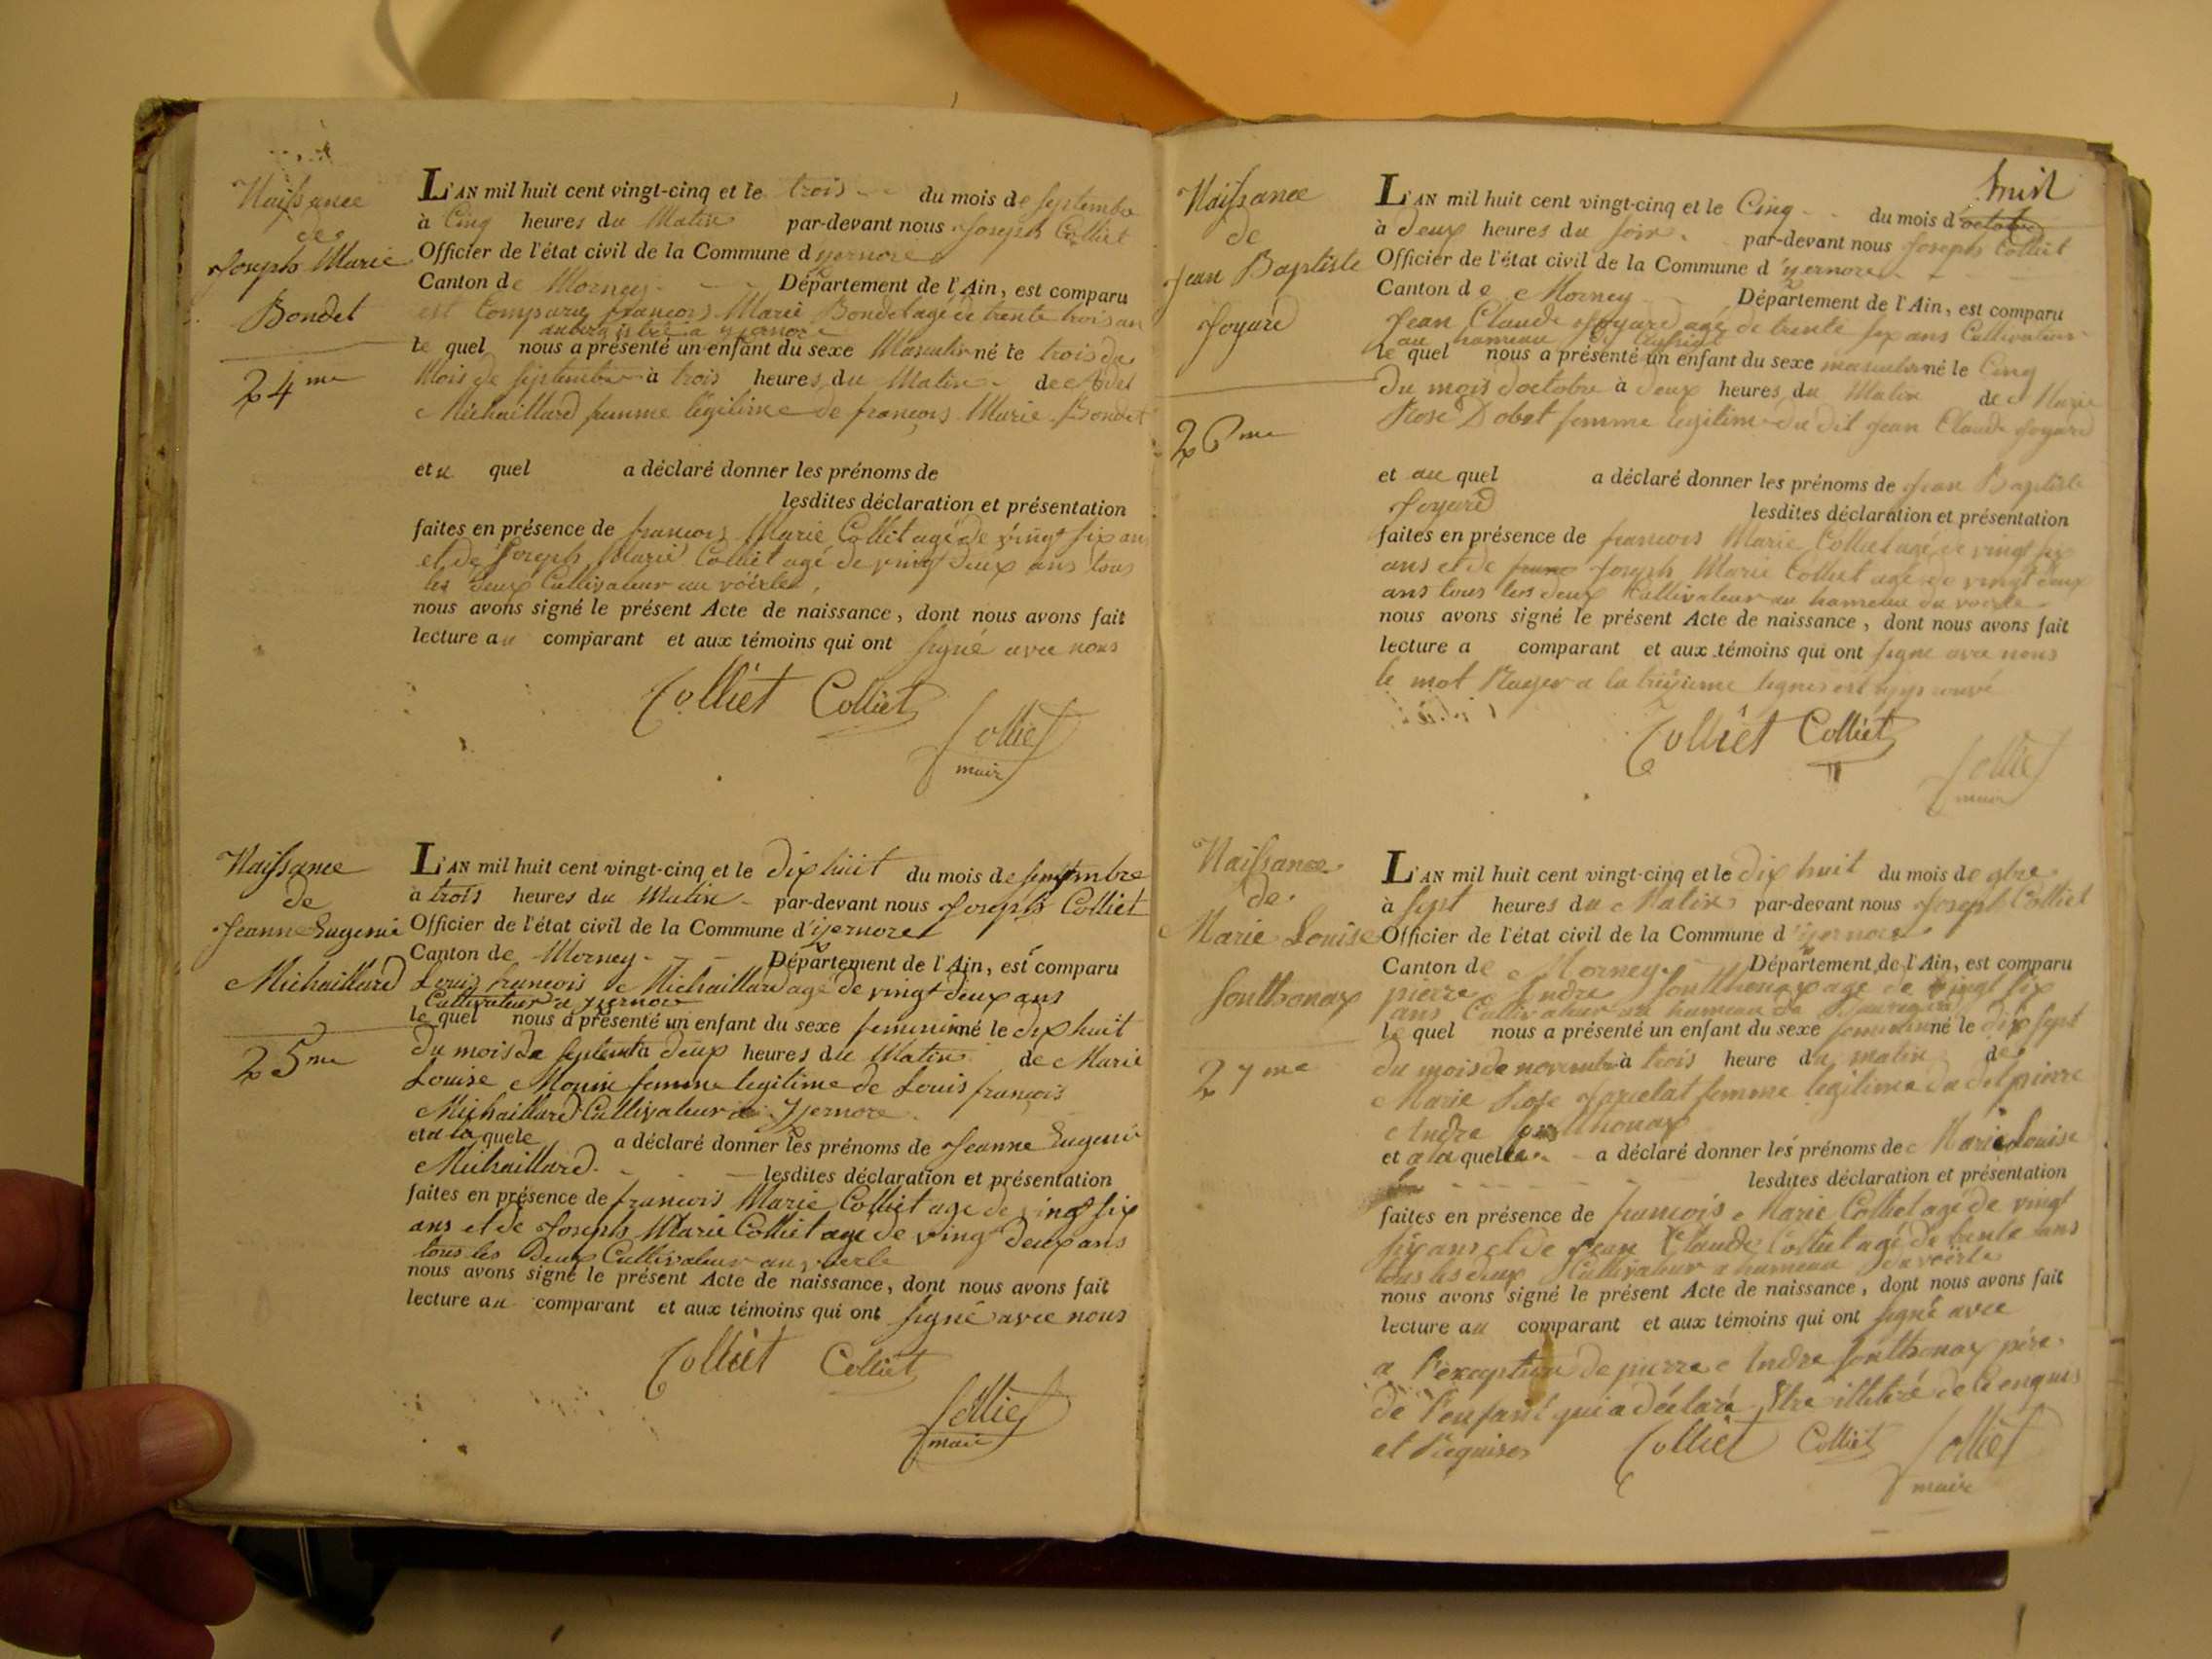 Naissance
de
Joseph Marie
Bondet
24me
L'AN mil huit cent vingt-cinq et le trois du mois de septembre
à Cinq heures du Matin par-devant nous Joseph Colliet
Officier de l'état civil de la Commune d'yzernore
Canton de Morney Département de l'Ain, est comparu
est comparu francois Marie Bondet agé de trente trois an
aubergiste a yzernore
le quel nous a présenté un enfant du sexe Masculin né le trois du
Mois de septembre à trois heures du Matin de
Michaillard femme légitime de francois Marie Bondet
et au quel a déclaré donner les prénoms de
lesdites déclaration et présentation
faites en présence de francois Marie Colliet agé de vingt six an
et de Joseph Marie Colliet agé de vingt deux ans tous
les deux Cultivateur au voërle
nous avons signé le présent Acte de naissance, dont nous avons fait
lecture au comparant et aux témoins qui ont signé avec nous
Colliet Colliet
Colliet
maire
Naissance
de
Jeanne Eugenie
Michaillard
25me
L'AN mil huit cent vingt-cinq et le dix huit du mois de septembre
à trois heures du Matin par-devant nous Joseph Colliet
Officier de l'état civil de la Commune d'yzernore
Canton de Morney Département de l'Ain, est comparu
Louis francois Michaillard agé de vingt deux ans
Cultivateur a yzernore
le quel nous a présenté un enfant du sexe feminin né le dix huit
du mois de septembre à deux heures du Matin de Marie
Louise Monin femme legitime de Louis francois
Michaillard Cultivateur a Yzernore
et a la quele a déclaré donner les prénoms de Jeanne Eugenie
Michaillard lesdites déclaration et présentation
faites en présence de francois Marie Colliet agé de vingt six
ans et de Joseph Marie Colliet agé de vingt deux ans
tous les deux Cultivateur au voerle
nous avons signé le présent Acte de naissance, dont nous avons fait
lecture au comparant et aux témoins qui ont signé avec nous
Colliet Colliet
Colliet
maire
Naissance
de
Jean Baptiste
Joyard
26me
L'AN mil huit cent vingt-cinq et le Cinq du mois d'octobre
à deux heures du soir par-devant nous Joseph Colliet
Officier de l'état civil de la Commune d'yzernore
Canton de Morney Département de l'Ain, est comparu
Jean Claude Joyard agé de trente six ans Cultivateur
au hameau de
le quel nous a présenté un enfant du sexe masculin né le Cinq
du mois doctobre à deux heures du Matin de Marie
Rose Dobet femme legitime du dit Jean Claude Joyard
et au quel a déclaré donner les prénoms de Jean Baptiste
Joyard lesdites déclaration et présentation
faites en présence de francois Marie Colliet agé de vingt six
ans et de Joseph Marie Colliet agé de vingt deux
ans tous les deux Cultivateur au hameau du voerle
nous avons signé le présent Acte de naissance, dont nous avons fait
lecture a comparant et aux témoins qui ont signé avec nous
le mot Rayer a la treizieme lignes est approuvé
Colliet Colliet
Colliet
maire
Naissance
de
Marie Louise
Sonthonax
27me
L'AN mil huit cent vingt-cinq et le dix huit du mois de 9bre
à sept heures du Matin par-devant nous Joseph Colliet
Officier de l'état civil de la Commune d'yzernore
Canton de Morney Département de l'Ain, est comparu
pierre Andre Sonthonax age de vingt six
ans Cultivateur au hameau de
le quel nous a présenté un enfant du sexe feminin né le dix sept
du mois de novembre à trois heure du matin de
Marie Rose femme legitime du dit pierre
Andre Sonthonax
et a la quelle a déclaré donner les prénoms de Marie Louise
lesdites déclaration et présentation
faites en présence de francois Marie Colliet agé de vingt
six ans et de Jean Claude Colliet agé de trente ans
tous les deux Cultivateur a hameau du voërle
nous avons signé le présent Acte de naissance, dont nous avons fait
lecture au comparant et aux témoins qui ont signé avec
a l'exception de pierre Andre Sonthonax père
de l'enfant qui a déclaré Etre illitéré de ce enquis
et Requises Colliet Colliet Colliet
maire